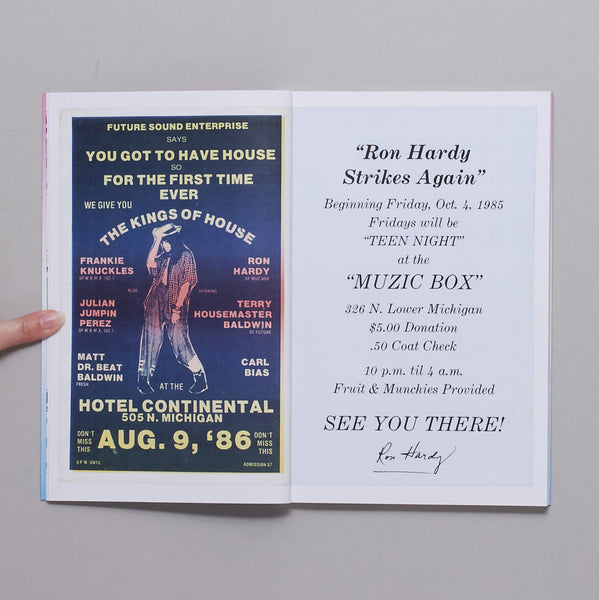 FUTURE SOUND ENTERPRISE
SAYS
YOU GOT TO HAVE HOUSE
SO
FOR THE FIRST TIME
EVER
WE GIVE YOU
THE KINGS OF HOUSE
FRANKIE
KNUCKLES
OF W.B.M.X. 102.7
RON
HARDY
OF MUZ BOX
ALSO SPINNING
JULIAN
JUMPIN
PEREZ
OF W.B.M.X. 102.7
TERRY
HOUSEMASTER
BALDWIN
OF FUTURE
MATT
DR. BEAT
BALDWIN
FRESH
CARL
BIAS
AT THE
HOTEL CONTINENTAL
505 N. MICHIGAN
DON'T
MISS
THIS
AUG. 9, '86
DON'T
MISS
THIS
8 P.M. UNTIL
ADMISSION $7
"Ron Hardy
Strikes Again"
Beginning Friday, Oct. 4, 1985
Fridays will be
"TEEN NIGHT"
at the
"MUZIC BOX"
326 N. Lower Michigan
$5.00 Donation
.50 Coat Check
10 p.m. til 4 a.m.
Fruit & Munchies Provided
SEE YOU THERE!
Ron Hardy